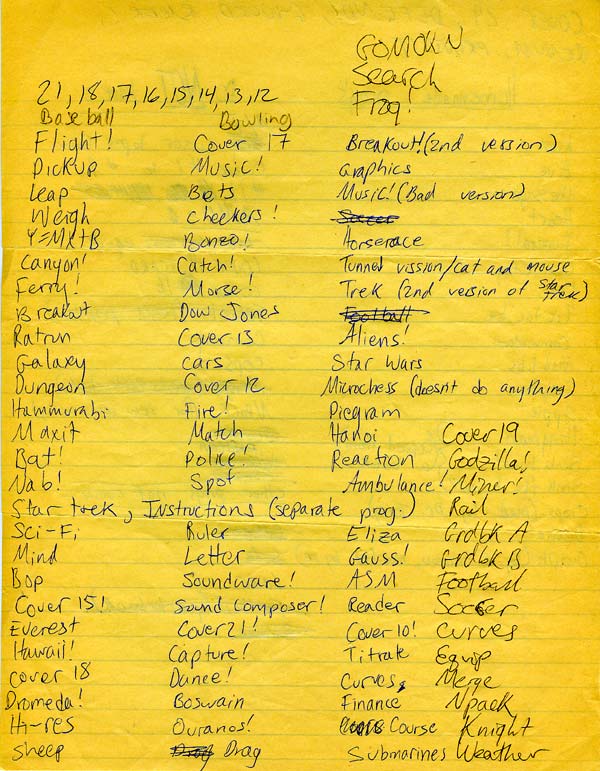 GOMOKU
Search
Frog!
21, 18, 17, 16, 15, 14, 13, 12
Baseball Bowling
Flight! Cover 17 Breakout! (2nd version)
Pickup Music! Graphics
Leap Bets Music! (Bad version)
Weigh Checkers! Soccer
Y=MX+B Bonzo! Horserace
Canyon! Catch! Tunnel vission/cat and mouse
Ferry! Morse! Trek (2nd version of Star Trek)
Breakout Dow Jones Football
Ratrun Cover 13 Aliens!
Galaxy Cars Star Wars
Dungeon Cover 12 Microchess (doesn't do anything)
Hammurabi Fire! Piegram
Maxit Match Hanoi Cover 19
Bat! Police! Reaction Godzilla!
Nab! Spot Ambulance! Miner!
Star trek, Instructions (separate prog.) Rail
Sci-Fi Ruler Eliza Grdbk A
Mind Letter Gauss! Grdbk B
Bop Soundware! ASM Football
Cover 15! Sound Composer! Reader Soccer
Everest Cover 21! Cover 10! Curves
Hawaii! Capture! Titrate Equip
Cover 18 Dance! Curves, Merge
Dromeda! Boswain Finance Npack
Hi-res Ouranos! Course Knight
Sheep Drag Drag Submarines Weather